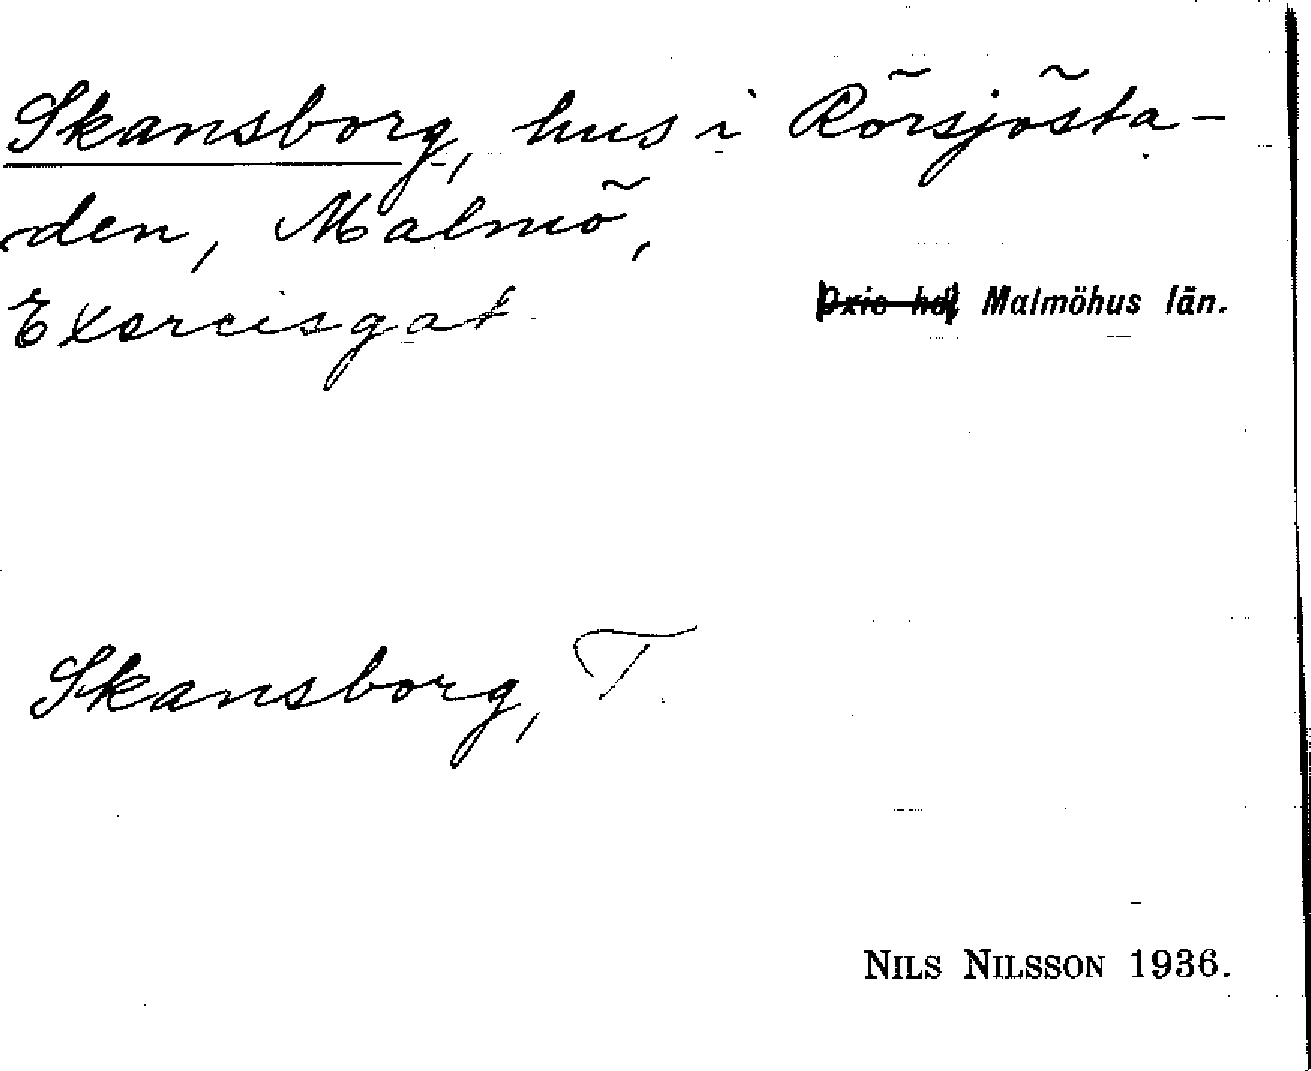 Skansborg, hus i Rörsjösta-
den, Malmö,
Exercisgat
Oxie hd, Malmöhus län.
Skansborg, T
NILS NILSSON 1936.